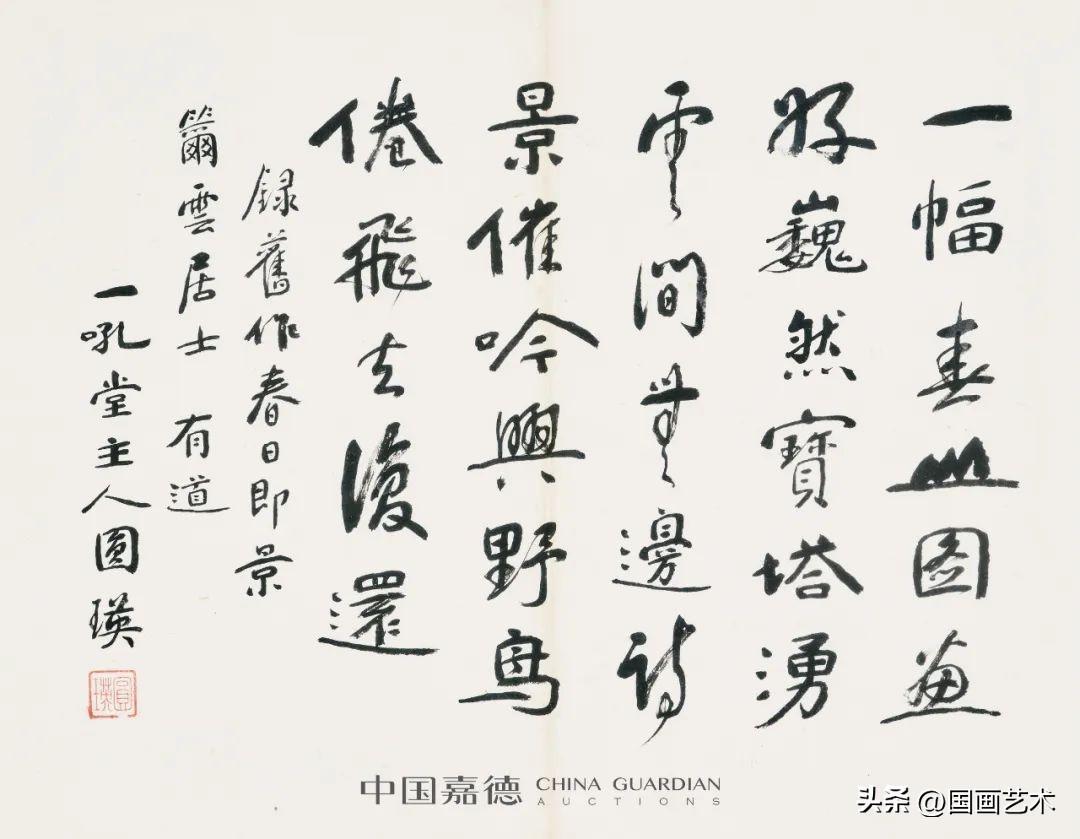 一幅春山图画
好巍然寶塔湧
雲間無邊詩
景催吟興野鸟
倦飛去復還
録舊作春日即景
籋雲居士 有道
一吼堂主人圓瑛
圓瑛
中国嘉德 CHINA GUARDIAN
AUCTIONS
头条 @国画艺术